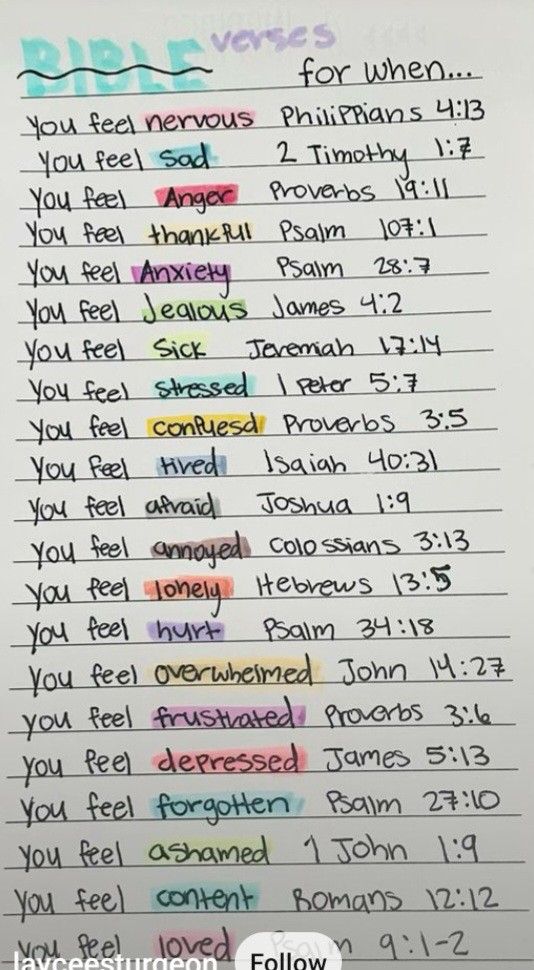 BIBLE verses
for when...
You feel nervous Philippians 4:13
You feel Sad 2 Timothy 1:7
You feel Anger Proverbs 19:11
You feel thankful Psalm 107:1
You feel Anxiety Psalm 28:7
You feel Jealous James 4:2
You feel Sick Jeremiah 17:14
You feel stressed 1 Peter 5:7
You feel confuesd Proverbs 3:5
You feel tired Isaiah 40:31
You feel afraid Joshua 1:9
You feel annoyed Colossians 3:13
You feel lonely Hebrews 13:5
You feel hurt Psalm 34:18
You feel overwhelmed John 14:27
you feel frustrated Proverbs 3:6
you feel depressed James 5:13
You feel forgotten Psalm 27:10
you feel ashamed 1 John 1:9
you feel content Romans 12:12
you feel loved Psalm 9:1-2
layceesturgeon Follow